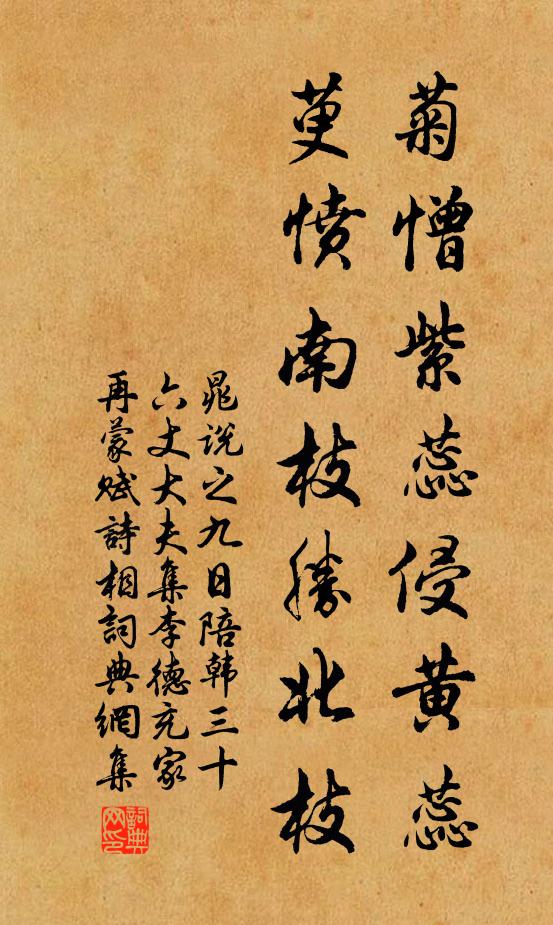 菊憎紫蕊侵黄蕊
萸憤南枝勝北枝
晁説之九日陪韓三十
六丈大夫集李德充家
再蒙賦詩相詞典網集
詞典
网印